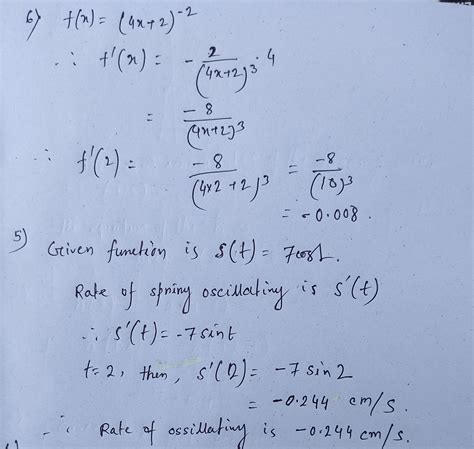 6) f(x) = (4x+2)^-2
∴ f'(x) = - 2/(4x+2)^3 · 4
= -8/(4x+2)^3
∴ f'(2) = -8/(4x2+2)^3 = -8/(10)^3
= -0.008.
5) Given function is s(t) = 7cost.
Rate of spring oscillating is s'(t)
∴ s'(t) = -7 sint
t=2, then, s'(2) = -7 sin 2
= -0.244 cm/s.
∴ Rate of ossillating is -0.244 cm/s.